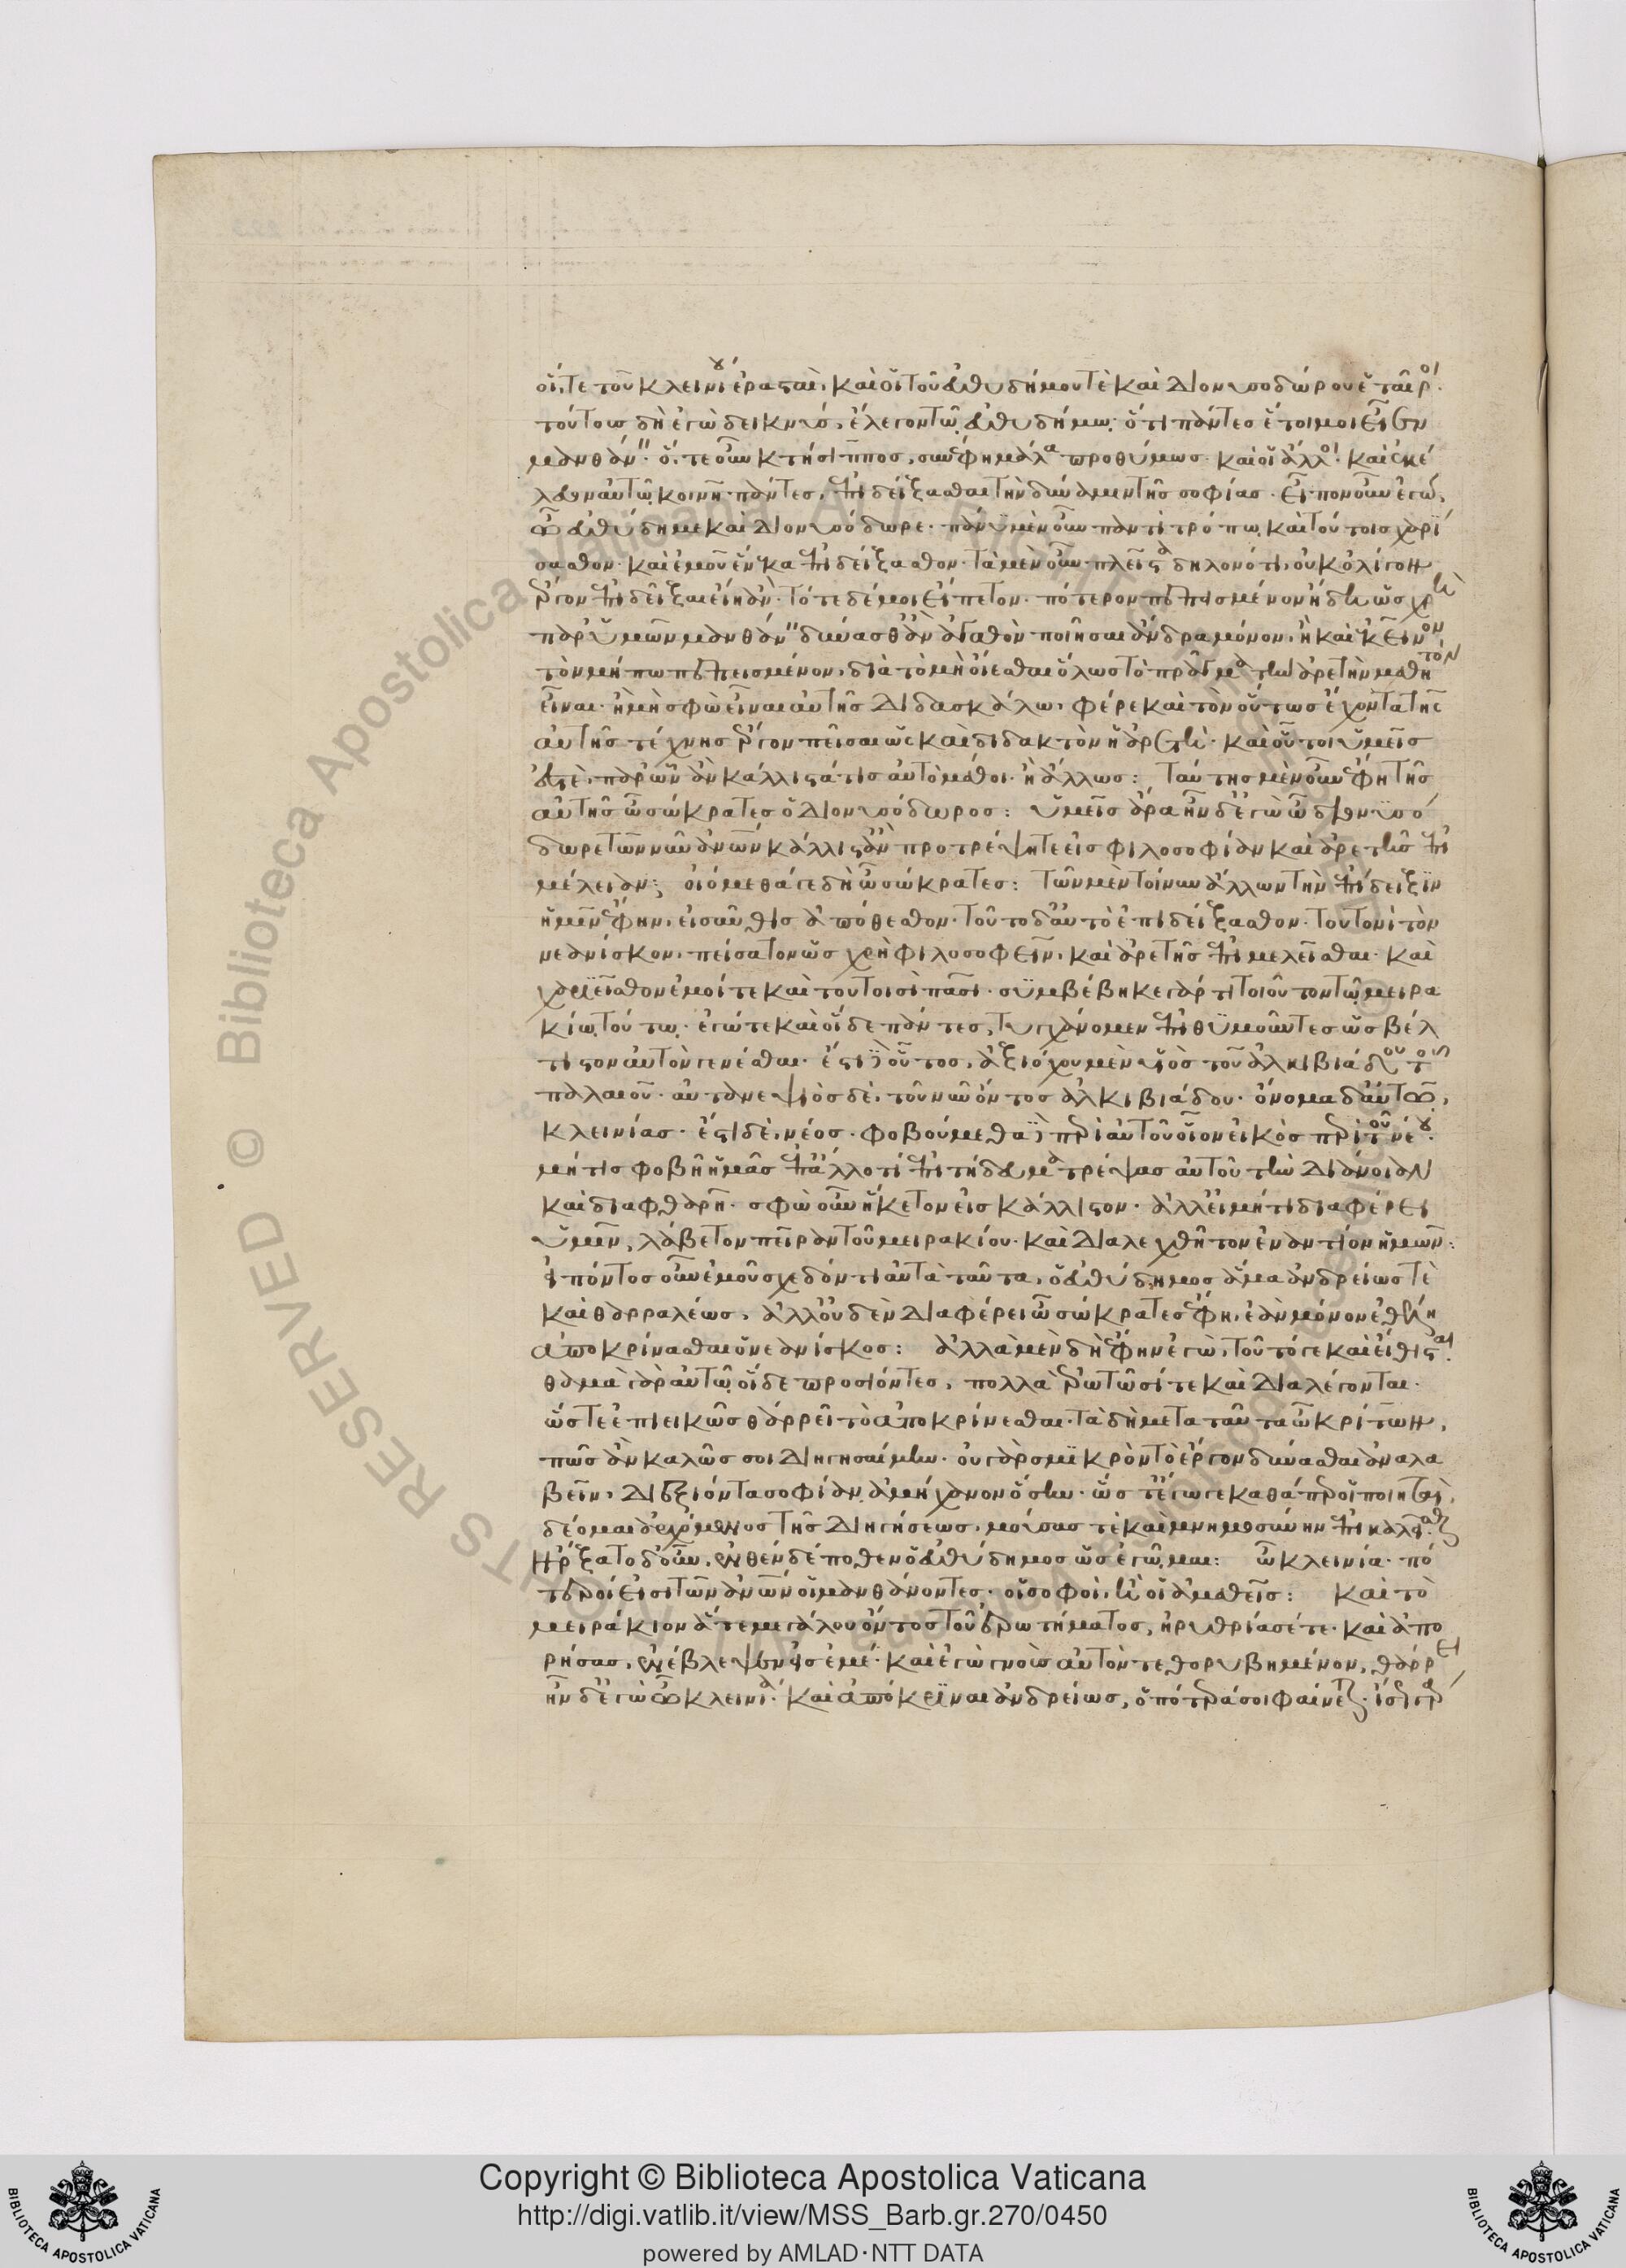 οἵ τε τοῦ κλεινίου ἐρασταὶ, καὶ οἱ τοῦ εὐθυδήμου τὲ καὶ Διονυσοδώρου ἑταῖροι.
τούτοις δὴ ἐγὼ δεικνὺς, ἔλεγον τῷ εὐθυδήμῳ· ὅτι πάντες ἕτοιμοι εἶεν
μανθάνειν. ὅ, τε οὖν κτήσιππος, συνέφη μάλα προθύμως. καὶ οἱ ἄλλοι. καὶ ἐκέ
λευον αὐτῷ κοινῇ πάντες, ἐπιδείξασθαι τὴν δύναμιν τῆς σοφίας. εἶπον οὖν ἐγώ,
ὦ εὐθύδημε καὶ Διονυσόδωρε. πάνυ μὲν οὖν παντὶ τρόπῳ καὶ τούτοις χαρί
σασθον. καὶ ἐμοῦ ἕνεκα ἐπιδείξασθον. τὰ μὲν οὖν πλεῖστα δηλονότι, οὐκ ὀλίγον
ἔργον ἐπιδεῖξαι· εἰ δὴ. τό τε δέ μοι εἴπετον. πότερον πεπεισμένον ἤδη ὡς χρὴ
παρ' ὑμῶν μανθάνειν δύναισθ' ἂν ἀγαθὸν ποιῆσαι ἄνδρα μόνον, ἢ καὶ κεῖνον
τὸν μήπω πεπεισμένον, διὰ τὸ μὴ οἴεσθαι ὅλως τὸ πρᾶγμα τὴν ἀρετὴν μαθητὸν
εἶναι. ἢ μὴ σφὼ εἶναι αὐτῆς Διδασκάλω, φέρε καὶ τὸν οὕτως ἔχοντα τῆς
αὐτῆς τέχνης ἔργον πεῖσαι ὡς καὶ διδακτὸν ἡ ἀρετὴ. καὶ οὗτοι ὑμεῖς
ἐστὲ, παρ' ὧν ἂν κάλλιστά τις αὐτὸ μάθοι. ἢ ἄλλως: ταύτης μὲν οὖν ἔφη τῆς
αὐτῆς ὦ σώκρατες ὁ Διονυσόδωρος: ὑμεῖς ἄρα ἦν δ' ἐγὼ ὦ διονυσό
δωρε τῶν νῦν ἀνθρώπων κάλλιστ' ἂν προτρέψητε εἰς φιλοσοφίαν καὶ ἀρετῆς ἐπι
μέλειαν; οἰόμεθά γε δὴ ὦ σώκρατες: τῶν μὲν τοίνυν ἄλλων τὴν ἐπίδειξιν
ἡμῖν ἔφην, εἰσαῦθις ἀπόθεσθον. τοῦτο δ' αὐτὸ ἐπιδείξασθον. τουτονὶ τὸν
νεανίσκον, πείσατον ὡς χρὴ φιλοσοφεῖν, καὶ ἀρετῆς ἐπιμελεῖσθαι. καὶ
χαριεῖσθον ἐμοί τε καὶ τουτοισὶ πᾶσι. συμβέβηκε γάρ τι τοιοῦτον τῷ μειρα
κίῳ τούτῳ. ἐγώ τε καὶ οἵδε πάντες, τυγχάνομεν ἐπιθυμοῦντες ὡς βέλ
τιστον αὐτὸν γενέσθαι. ἔστι δὲ οὗτος, ἀξιόχου μὲν υἱὸς τοῦ ἀλκιβιάδου τοῦ
παλαιοῦ. αὐτανεψιὸς δὲ, τοῦ νῦν ὄντος ἀλκιβιάδου. ὄνομα δ' αὐτῷ,
κλεινίας. ἔστι δὲ, νέος. φοβούμεθα δὲ περὶ αὐτοῦ οἷον εἰκὸς περὶ τοῦ νέου.
μή τις φθῇ ἡμᾶς ἐπ' ἄλλο τί ἐπιτήδευμα τρέψας αὐτοῦ τὴν Διάνοιαν
καὶ διαφθαρῇ. σφὼ οὖν ἥκετον εἰς κάλλιστον. ἀλλ' εἰ μή τι διαφέρει
ὑμῖν, λάβετον πεῖραν τοῦ μειρακίου. καὶ Διαλεχθῆτον ἐναντίον ἡμῶν:
εἰπόντος οὖν ἐμοῦ σχεδόν τι αὐτὰ ταῦτα, ὁ εὐθύδημος ἅμα ἀνδρείως τὲ
καὶ θαρραλέως, ἀλλ' οὐδὲν Διαφέρει ὦ σώκρατες ἔφη, ἐὰν μόνον ἐθέλῃ
ἀποκρίνασθαι ὁ νεανίσκος: ἀλλὰ μὲν δὴ ἔφην ἐγὼ, τοῦτό γε καὶ εἴθισται.
θαμὰ γὰρ αὐτῷ οἵδε προσιόντες, πολλὰ ἐρωτῶσί τε καὶ Διαλέγονται.
ὥστε ἐπιεικῶς θαρρεῖ τὸ ἀποκρίνεσθαι. τὰ δὴ μετὰ ταῦτα ὦ κρίτων,
πῶς ἂν καλῶς σοι Διηγησαίμην. οὐ γὰρ σμικρὸν τὸ ἔργον δύνασθαι ἀναλα
βεῖν, Διεξιόντα σοφίαν ἀμήχανον ὅσην. ὥστ' ἔγωγε καθάπερ οἱ ποιηταὶ,
δέομαι ἀρχόμενος τῆς Διηγήσεως, μούσας τὲ καὶ μνημοσύνην ἐπικαλεῖσθαι.
ἤρξατο δ' οὖν, ἐνθένδέ ποθεν ὁ εὐθύδημος ὡς ἐγῷμαι: ὦ κλεινία. πό
τεροί εἰσι τῶν ἀνθρώπων οἱ μανθάνοντες. οἱ σοφοὶ, ἢ οἱ ἀμαθεῖς: Καὶ τὸ
μειράκιον ἅτε μεγάλου ὄντος τοῦ ἐρωτήματος, ἠρυθρίασέ τε. καὶ ἀπο
ρήσας, ἐνέβλεψεν εἰς ἐμέ. καὶ ἐγὼ γνοὺς αὐτὸν τεθορυβημένον, θάρρει
ἦν δ' ἐγὼ ὦ κλεινία. καὶ ἀπόκριναι ἀνδρείως, ὁπότερά σοι φαίνεται. ἴσως γὰρ
Copyright © Biblioteca Apostolica Vaticana
http://digi.vatlib.it/view/MSS_Barb.gr.270/0450
powered by AMLAD·NTT DATA
BIBLIOTECA APOSTOLICA VATICANA
BIBLIOTECA APOSTOLICA VATICANA